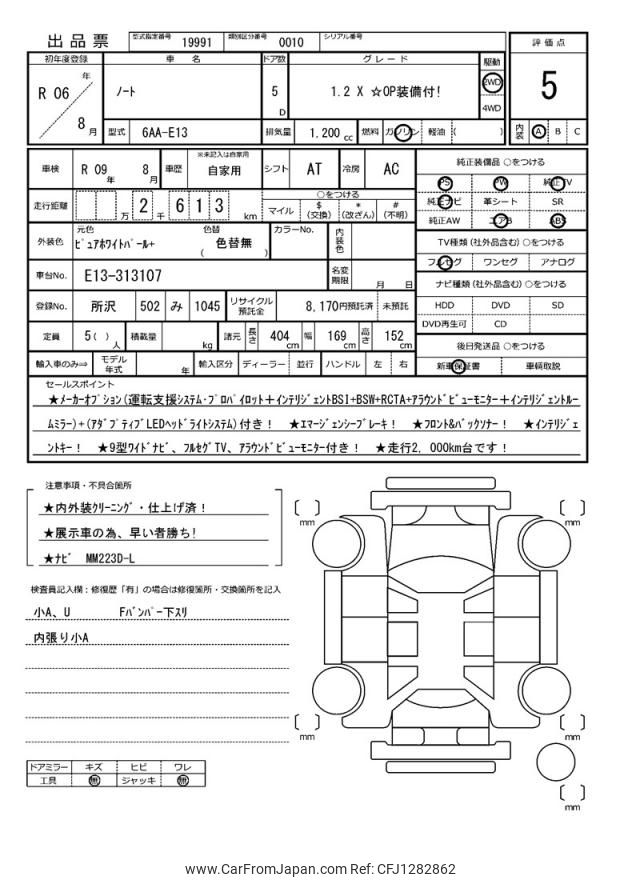 出品票 型式指定番号 19991 類別区分番号 0010 シリアル番号
評価点
5
内装 A B C
初年度登録 車名 ドア数 グレード 駆動
R 06 年 8 月 ノート 5 D 1.2 X ☆OP装備付! 2WD 4WD
型式 6AA-E13 排気量 1,200 cc 燃料 ガソリン 軽油 ( )
車検 R 09 年 8 月 車歴 ※未記入は自家用 自家用 シフト AT 冷房 AC
走行距離 万 2 千 6 1 3 km ○をつける マイル $(交換) *(改ざん) #(不明)
外装色 元色 ピュアホワイトパール+ 色替 ( 色替無 ) カラーNo. 内装色
車台No. E13-313107 名変期限 月 日
登録No. 所沢 502 み 1045 リサイクル預託金 8,170円預託済 未預託
定員 5 ( ) 人 積載量 kg 諸元 長さ 404 cm 幅 169 cm 高さ 152 cm
輸入車のみ⇨ モデル年式 年 輸入区分 ディーラー ・ 並行 ハンドル 左 ・ 右
純正装備品 ○をつける
PS PW 純正TV
純正ナビ 革シート SR
純正AW エアB ABS
TV種類 (社外品含む) ○をつける
フルセグ ワンセグ アナログ
ナビ種類 (社外品含む) ○をつける
HDD DVD SD
DVD再生可 CD
後日発送品 ○をつける
新車保証書 車輌取説
セールスポイント
★メーカーオプション(運転支援システム・プロパイロット+インテリジェントBSI+BSW+RCTA+アラウンドビューモニター+インテリジェントルー
ムミラー)+(アダプティブLEDヘッドライトシステム)付き! ★エマージェンシーブレーキ! ★フロント&バックソナー! ★インテリジェ
ントキー! ★9型ワイドナビ、フルセグTV、アラウンドビューモニター付き! ★走行2,000km台です!
注意事項・不具合箇所
★内外装クリーニング・仕上げ済!
★展示車の為、早い者勝ち!
★ナビ MM223D-L
検査員記入欄:修復歴「有」の場合は修復箇所・交換箇所を記入
小A、U Fバンパー下スリ
内張り小A
ドアミラー キズ ヒビ ワレ
工具 無 ジャッキ 無
mm
mm
mm
mm
mm
www.CarFromJapan.com Ref: CFJ1282862